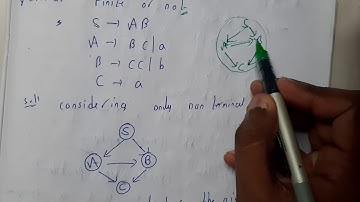 finite or not
S → AB
A → BC | a
B → CC | b
C → a
Soln: considering only non terminal
S
A B
C
S
A
C